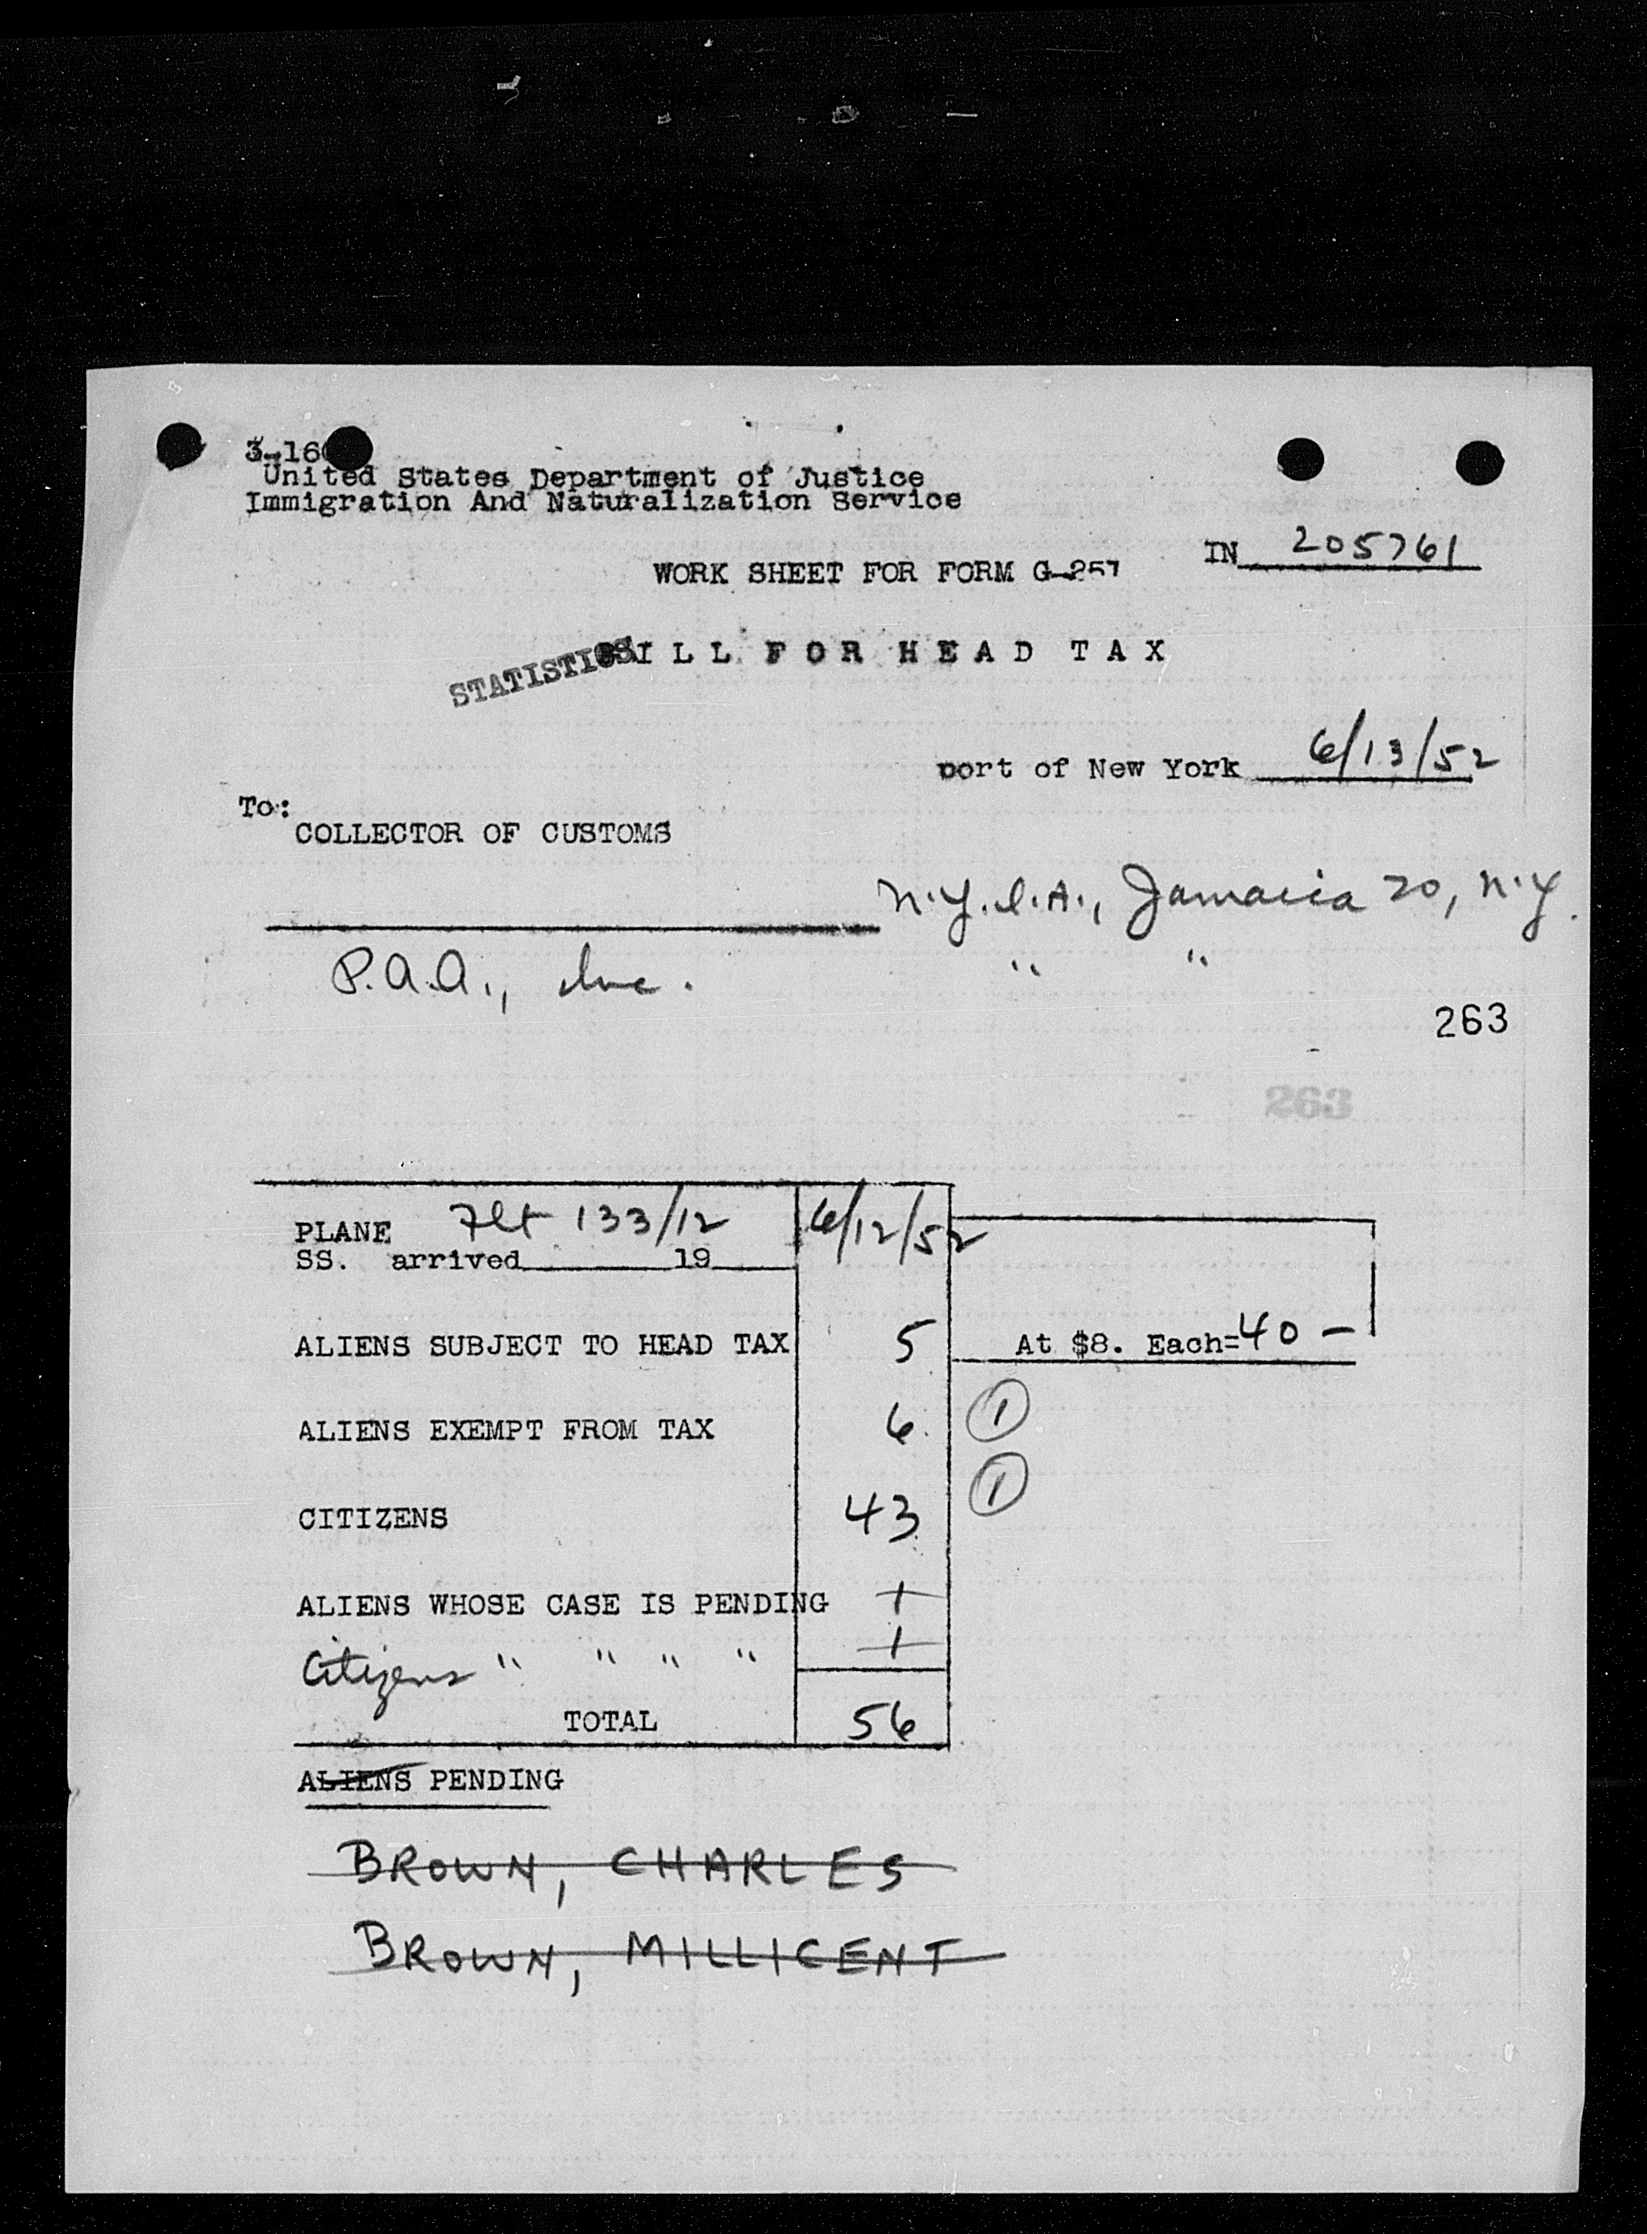 3-160
United States Department of Justice
Immigration And Naturalization Service
IN 205761
WORK SHEET FOR FORM G-257
STATISTICS
BILL FOR HEAD TAX
port of New York 6/13/52
To:
COLLECTOR OF CUSTOMS
N.Y.I.A., Jamaica 20, N.Y.
P.A.A., Inc. " "
263
263
PLANE Flt 133/12 6/12/52
SS. arrived 19
ALIENS SUBJECT TO HEAD TAX 5 At $8. Each=40 -
ALIENS EXEMPT FROM TAX 6 1
CITIZENS 43 1
ALIENS WHOSE CASE IS PENDING 1
Citizens " " " " 1
TOTAL 56
ALIENS PENDING
BROWN, CHARLES
BROWN, MILLICENT